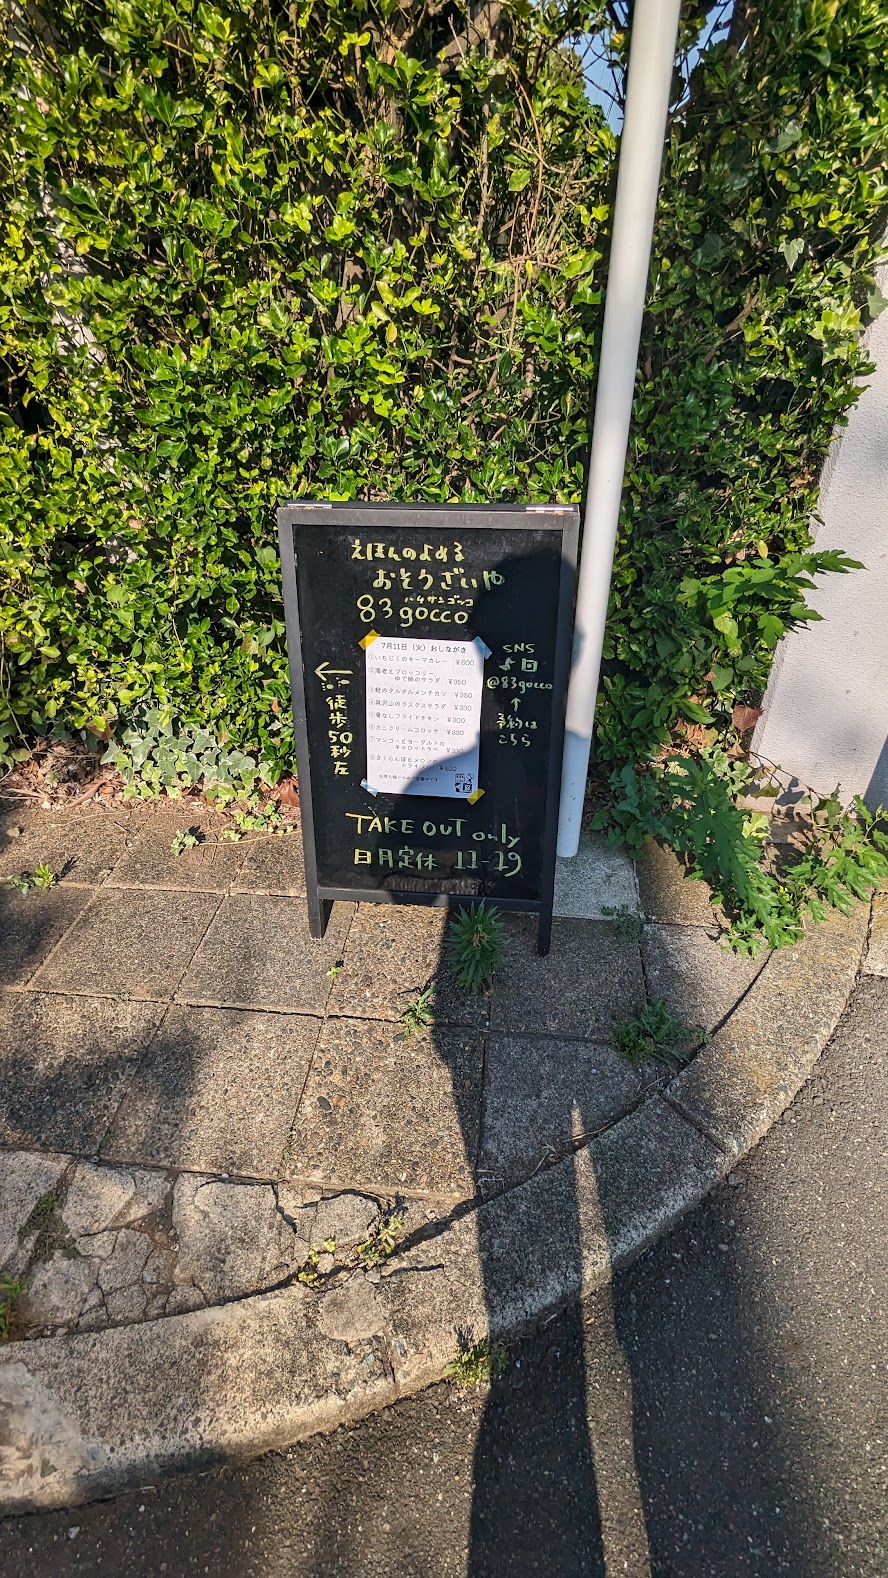 えほんのよめる
おそうざいや
ハチサンゴッコ
83gocco
7月11日（火）おしながき
①いちじくのキーマカレー ¥600
②海老とブロッコリー、
ゆで卵のサラダ ¥350
③鮭のタルタルメンチカツ ¥350
④具沢山のクスクスサラダ ¥330
⑤骨なしフライドチキン ¥300
⑥カニクリームコロッケ ¥330
⑦マンゴーとヨーグルトの
キャロットラペ ¥330
⑧さくらんぼとメロンの
¥400
←
徒歩50秒左
SNS
@83gocco
↑
予約は
こちら
TAKE OUT only
日月定休 11-19